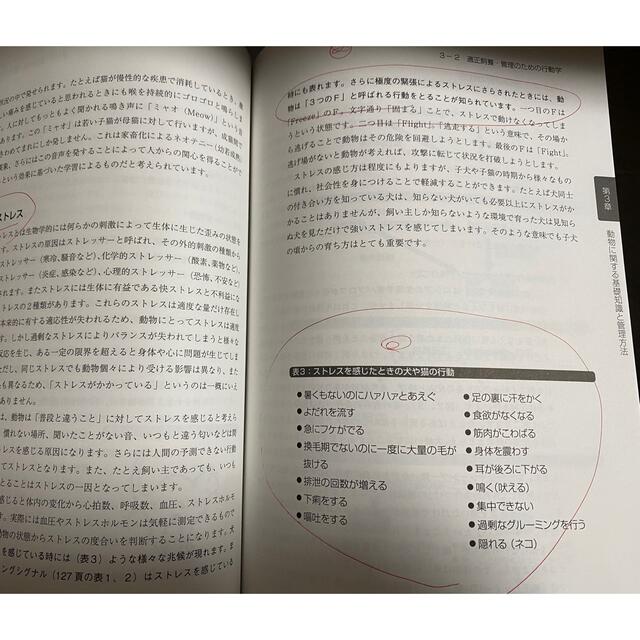 況の中で発せられます。たとえば猫が慢性的な疾患で消耗しているとき、激
みを感じていると思われるときにも喉を持続的にゴロゴロと鳴らしま
す。人に対してもっともよく聞かれる鳴き声に「ミャオ(Meow)」という音
あります。この「ミャオ」は若い子猫が母猫に対して行いますが、成猫間で
きわめてまれにしか発しません。これは家畜化によるネオテニー(幼若成熟)
果、さらにはこの音声を発することによって人からの関心を得ることがで
という効果に基づいた学習によるものだと考えられています。
ストレス
トレスとは生物学的には何らかの刺激によって生体に生じた歪みの状態を
す。ストレスの原因はストレッサーと呼ばれ、その外的刺激の種類から
ストレッサー(寒冷、騒音など)、化学的ストレッサー(酸素、薬物など)、
ストレッサー(炎症、感染など)、心理的ストレッサー(恐怖、不安など)
されます。またストレスには生体に有益である快ストレスと不利益にな
トレスの2種類があります。これらのストレスは適度な量だけ存在し
本来的に有する適応性が失われるため、動物にとってストレスは適度
す。しかし過剰なストレスによりバランスが失われてしまうと様々な
反応を生じ、ある一定の限界を超えると身体や心に問題が生じてしま
ただし、同じストレスでも動物個々により受ける影響は異なり、また
も異なるため、「ストレスがかかっている」というのは一概にいえ
ありません。
は、動物は「普段と違うこと」に対してストレスを感じると考えら
慣れない場所、聞いたことがない音、いつもと違う匂いなどは間
を感じる原因になります。さらには人間の予測できない行動
てストレスとなります。また、たとえ飼い主であっても、いつも
とることはストレスの一因となってしまいます。
感じると体内の変化から心拍数、呼吸数、血圧、ストレスホルモ
す。実際には血圧やストレスホルモンは気軽に測定できるもので
動物の状態からストレスの度合いを判断することになります。犬
を感じている時には(表3)ような様々な兆候が現れます。ま
ングシグナル(127頁の表1、2)はストレスを感じている
3-2 適正飼養・管理のための行動学
時にも表れます。さらに極度の緊張によるストレスにさらされたときには、動
物は「3つのF」と呼ばれる行動をとることが知られています。一つ目のFは
「Freeze」のF。文字通り「固まる」ことで、ストレスで動けなくなってしま
うという状態です。二つ目は「Flight」。「逃走する」という意味で、その場か
ら逃げることで動物はその危険を回避しようとします。最後のFは「Fight」。
逃げ場がないと動物が考えれば、攻撃に転じて状況を打破しようとします。
ストレスの感じ方は程度にもよりますが、子犬や子猫の時期から様々なもの
に慣れ、社会性を身につけることで軽減することができます。たとえば犬同士
の付き合い方を知っている犬は、知らない犬がいても必要以上にストレスがか
かることはありませんが、飼い主しか知らないような環境で育った犬は見知ら
ぬ犬を見ただけで強いストレスを感じてしまいます。そのような意味でも子犬
の頃からの育ち方はとても重要です。
第3章
動物に関する基礎知識と管理方法
表3:ストレスを感じたときの犬や猫の行動
●暑くもないのにハァハァとあえぐ
●よだれを流す
●急にフケがでる
●換毛期でないのに一度に大量の毛が
抜ける
●排泄の回数が増える
●下痢をする
●嘔吐をする
●足の裏に汗をかく
●食欲がなくなる
●筋肉がこわばる
●身体を震わす
●耳が後ろに下がる
●鳴く(吠える)
●集中できない
●過剰なグルーミングを行う
●隠れる(ネコ)